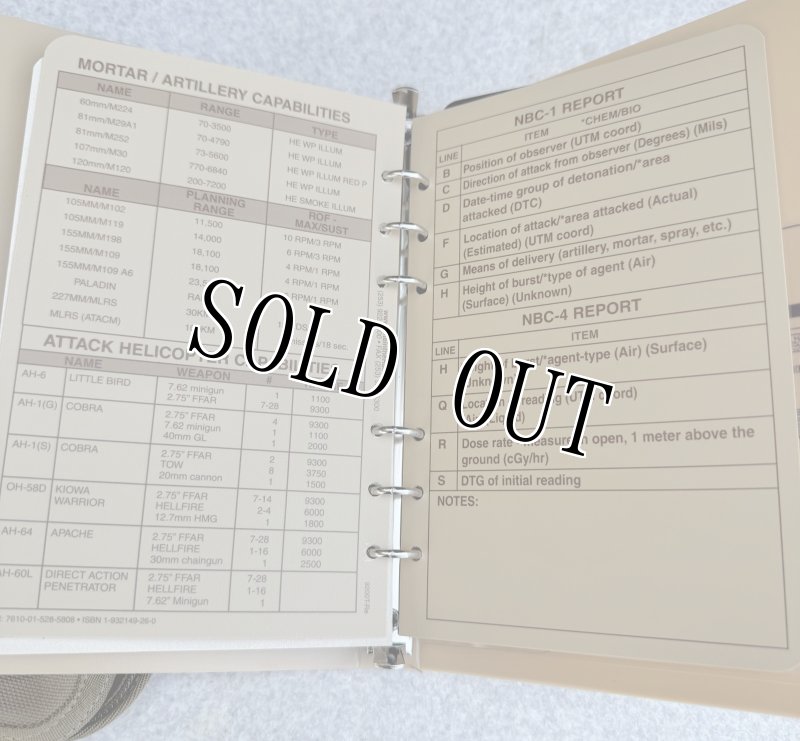 MORTAR / ARTILLERY CAPABILITIES
NAME RANGE TYPE
60mm/M224 70-3500 HE WP ILLUM
81mm/M29A1 70-4790 HE WP ILLUM
81mm/M252 73-5600 HE WP ILLUM RED P
107mm/M30 770-6840 HE WP ILLUM
120mm/M120 200-7200 HE SMOKE ILLUM
NAME PLANNING RANGE ROF - MAX/SUST
105MM/M102 11,500 10 RPM/3 RPM
105MM/M119 14,000 6 RPM/3 RPM
155MM/M198 18,100 4 RPM/1 RPM
155MM/M109 18,100 4 RPM/1 RPM
155MM/M109 A6 RPM/1 RPM
PALADIN
227MM/MLRS
MLRS (ATACM) /18 sec.
ATTACK HELICOPTER CAPABILITIES
NAME WEAPON #
AH-6 LITTLE BIRD 7.62 minigun 1 1100
2.75" FFAR 7-28 9300
AH-1(G) COBRA 2.75" FFAR 4 9300
7.62 minigun 1 1100
40mm GL 1 2000
AH-1(S) COBRA 2.75" FFAR 2 9300
TOW 8 3750
20mm cannon 1 1500
OH-58D KIOWA 2.75" FFAR 7-14 9300
WARRIOR HELLFIRE 2-4 6000
12.7mm HMG 1 1800
AH-64 APACHE 2.75" FFAR 7-28 9300
HELLFIRE 1-16 6000
30mm chaingun 1 2500
AH-60L DIRECT ACTION 2.75" FFAR 7-28
PENETRATOR HELLFIRE 1-16
7.62" Minigun 1
7610-01-528-5808 • ISBN 1-932149-26-0
NBC-1 REPORT
LINE ITEM *CHEM/BIO
B Position of observer (UTM coord)
C Direction of attack from observer (Degrees) (Mils)
D Date-time group of detonation/*area
attacked (DTC)
F Location of attack/*area attacked (Actual)
(Estimated) (UTM coord)
G Means of delivery (artillery, mortar, spray, etc.)
H Height of burst/*type of agent (Air)
(Surface) (Unknown)
NBC-4 REPORT
LINE ITEM
H Height of burst/*agent-type (Air) (Surface)
(Unknown)
Q Location of reading (UTM coord)
R Dose rate measured in open, 1 meter above the
ground (cGy/hr)
S DTG of initial reading
NOTES:
SOLD OUT